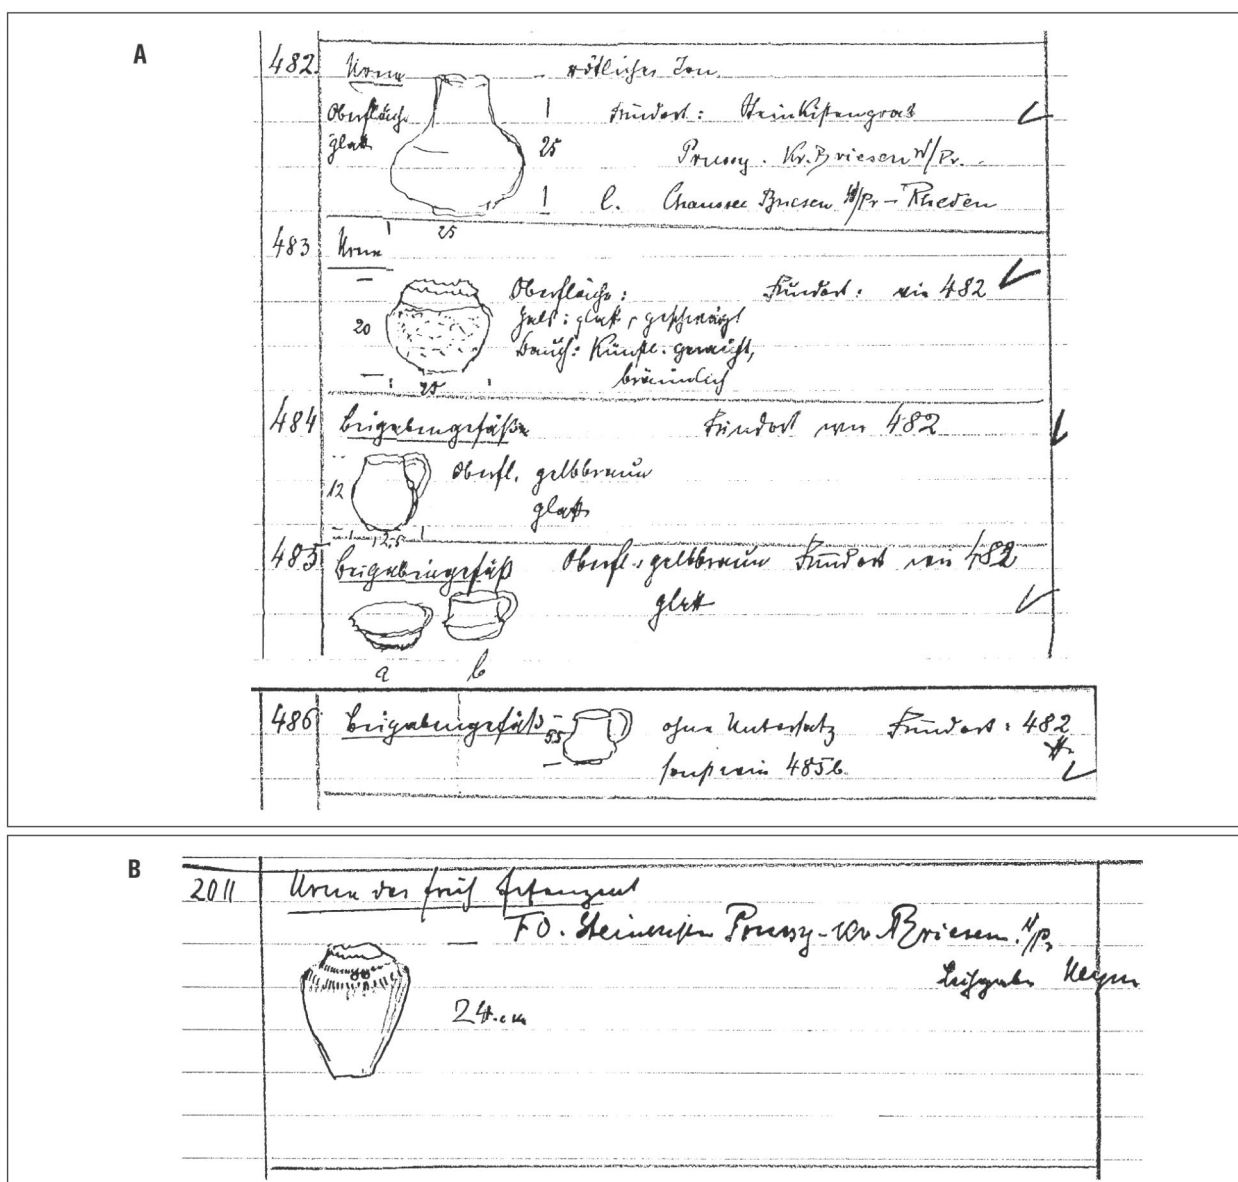 A
482. Urne rötlicher Ton.
Oberfläche 1 Fundort: Steinkistengrab
glatt 25 Prussy. Kr. Briesen W/Pr.
1 l. Chaussee Briesen W/Pr - Rheden
25
483 Urne
Oberfläche: Fundort: wie 482
Hals: glatt, geschwärzt
20 Bauch: Künstl. gerauht,
25 bräunlich
484 Beigabengefäße Fundort wie 482
12 Oberfl. gelbbraun
glatt
12,5
485 Beigabengefäß Oberfl.: gelbbraun Fundort wie 482
glatt
a b
486 Beigabengefäß 55 ohne Untersatz Fundort: 482
sonst wie 485b.
B
2011 Urne der früh Eisenzeit
FO. Steinkisten Prussy - Kr. Briesen W/Pr
Leihgabe
24 cm